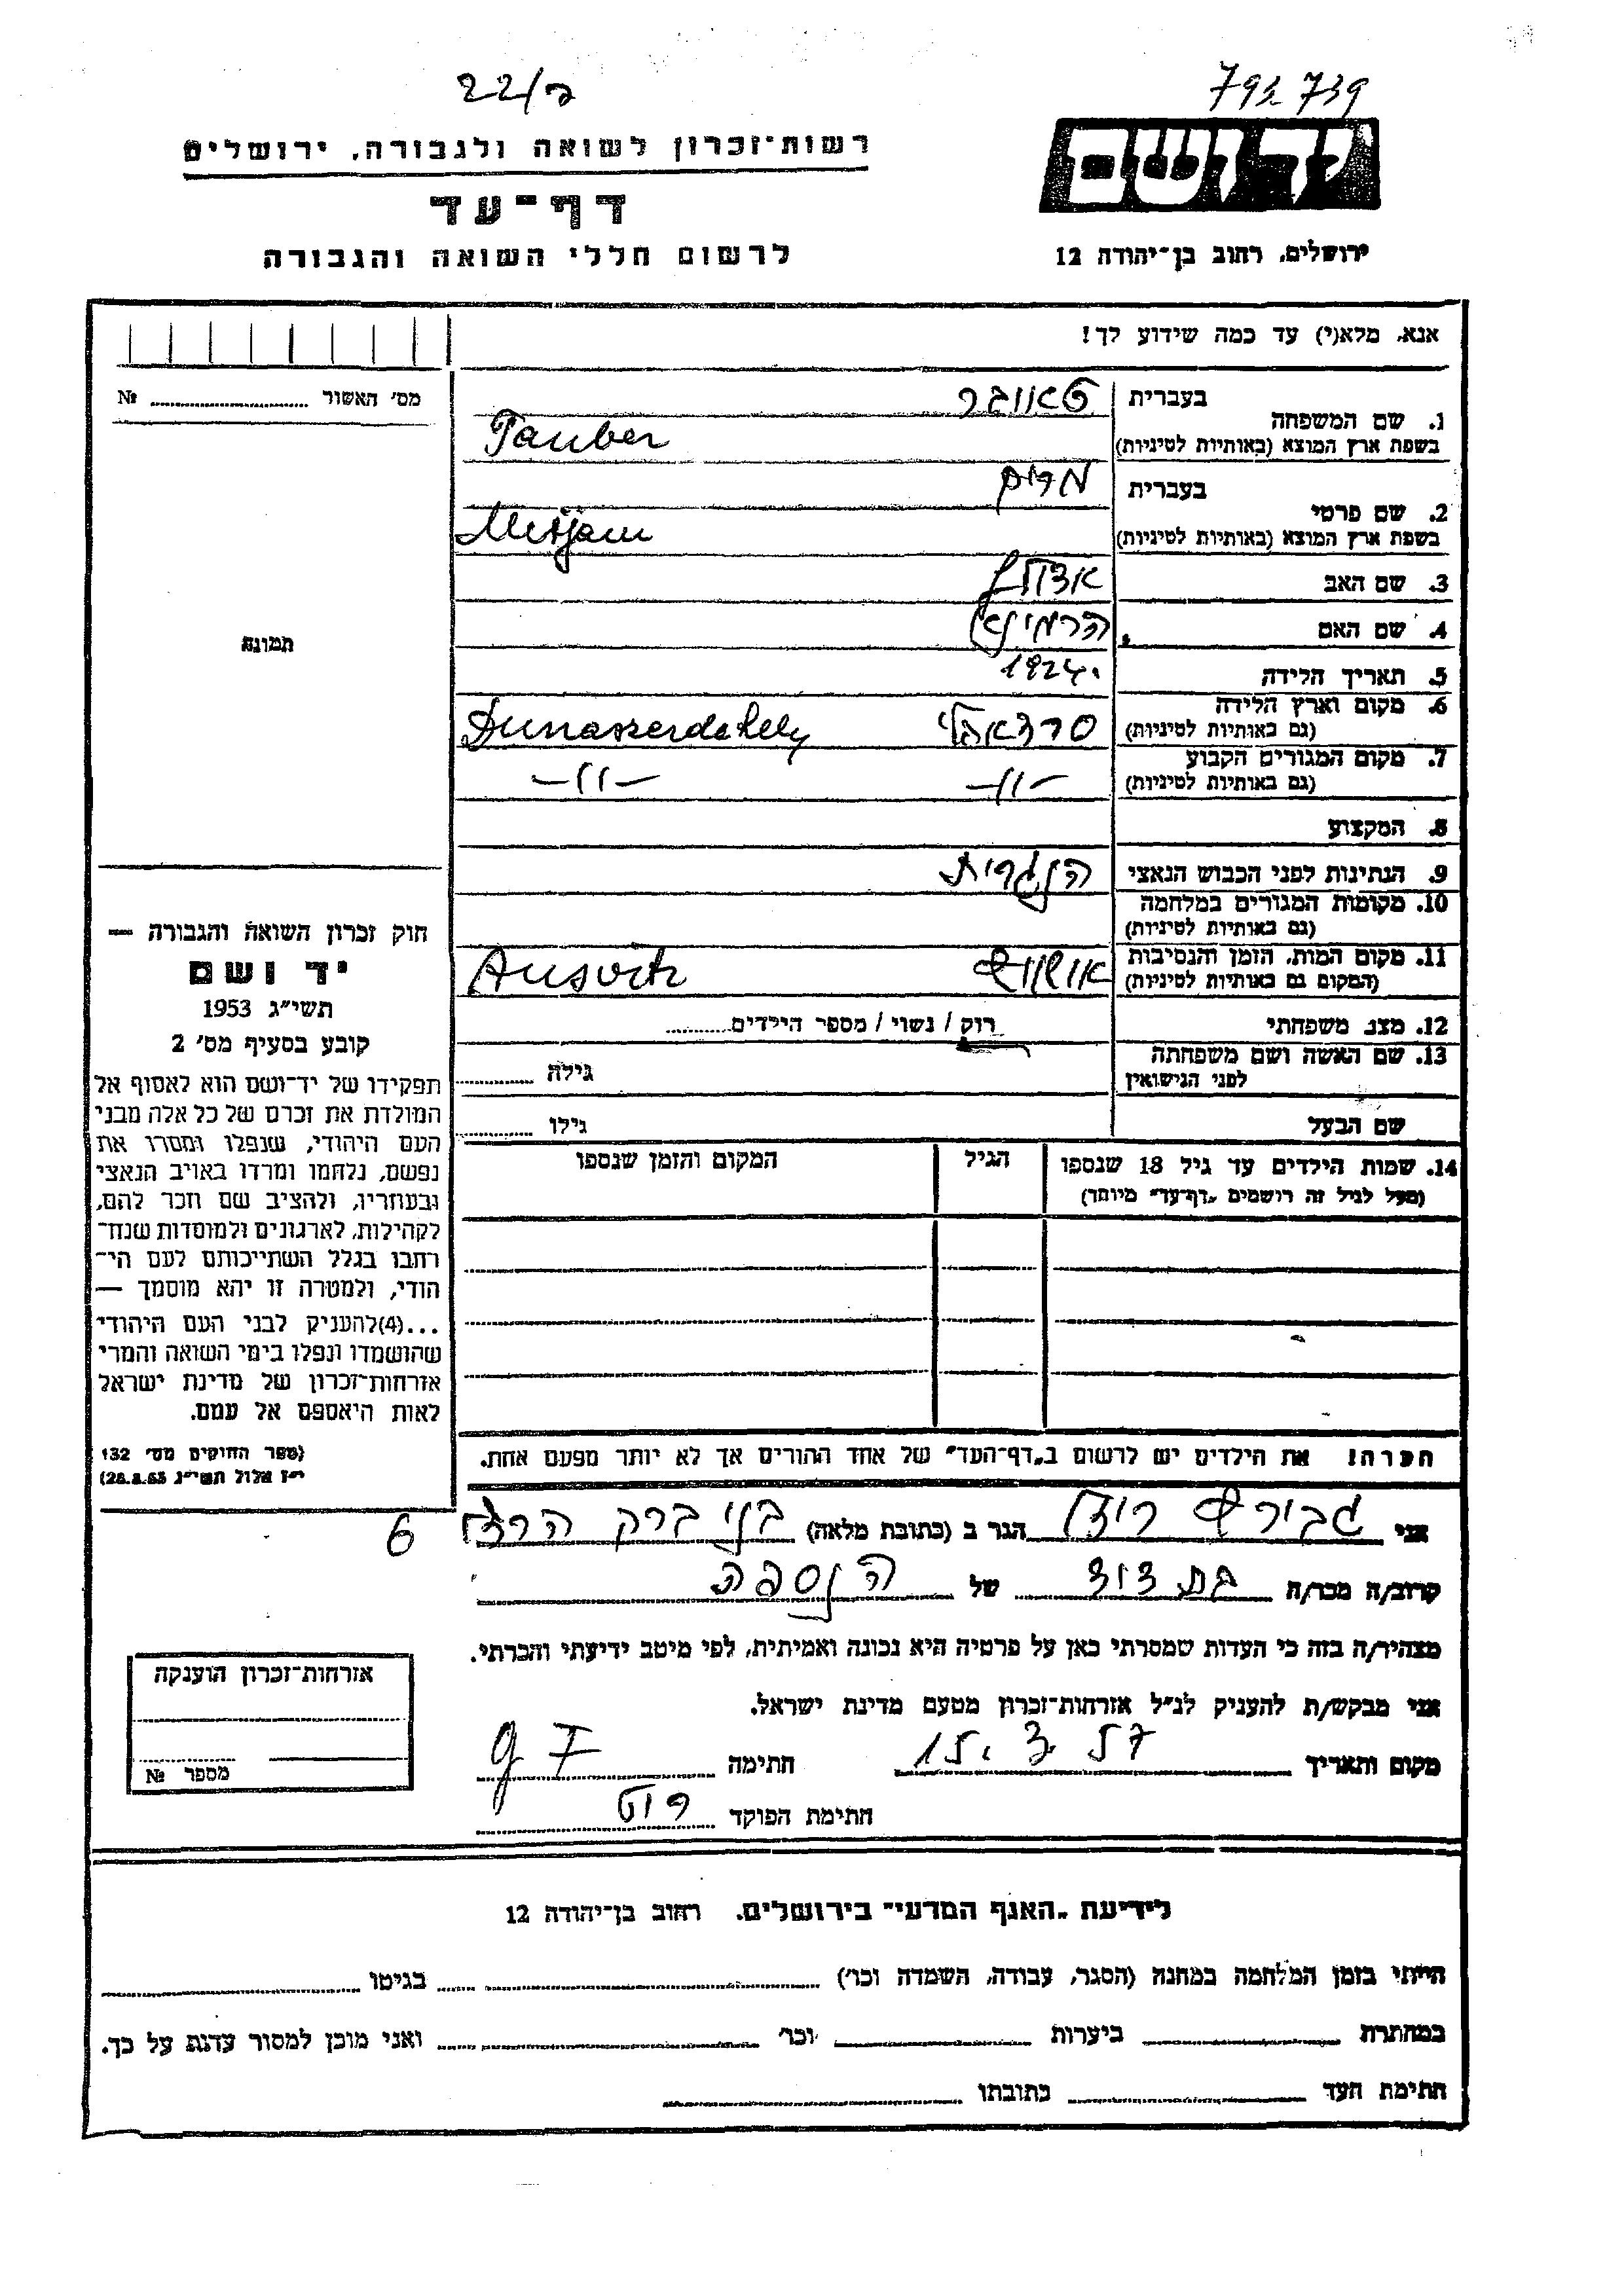 22/ם
793739
רשות-זכרון לשואה ולגבורה, ירושלים
דף-עד
לרשום חללי השואה והגבורה
יד ושם
ירושלים, רחוב בן-יהודה 12
אנא, מלא(י) עד כמה שידוע לך!
מס' האשור № ........
1. שם המשפחה
בעברית טאובר
בשפת ארץ המוצא (באותיות לטיניות) Tauber
2. שם פרטי
בעברית מרים
בשפת ארץ המוצא (באותיות לטיניות) Mirjam
3. שם האב אדולף
4. שם האם הרמינא
5. תאריך הלידה 1924
6. מקום וארץ הלידה
(גם באותיות לטיניות) סרדאהלי Dunaszerdahely
7. מקום המגורים הקבוע
(גם באותיות לטיניות) -"- -"-
8. המקצוע
9. הנתינות לפני הכבוש הנאצי הונגרית
10. מקומות המגורים במלחמה
(גם באותיות לטיניות)
11. מקום המות, הזמן והנסיבות
(המקום גם באותיות לטיניות) אושוויץ Ausvitz
12. מצב משפחתי רוק / נשוי / מספר הילדים........
13. שם האשה ושם משפחתה
לפני הנישואין גילה ........
שם הבעל גילו ........
14. שמות הילדים עד גיל 18 שנספו הגיל המקום והזמן שנספו
(מעל לגיל זה רושמים "דף-עד" מיוחד)
תמונה
חוק זכרון השואה והגבורה —
יד ושם
תשי"ג 1953
קובע בסעיף מס' 2
תפקידו של יד-ושם הוא לאסוף אל
המולדת את זכרם של כל אלה מבני
העם היהודי, שנפלו ומסרו את
נפשם, נלחמו ומרדו באויב הנאצי
ובעוזריו, ולהציב שם וזכר להם,
לקהילות, לארגונים ולמוסדות שנח-
רחבו בגלל השתייכותם לעם הי-
הודי, ולמטרה זו יהא מוסמך —
...(4)להעניק לבני העם היהודי
שהושמדו ונפלו בימי השואה והמרי
אזרחות-זכרון של מדינת ישראל
לאות היאספם אל עמם.
(ספר החוקים מס' 132
י"ז אלול תשי"ג 28.8.53)
הערה! את הילדים יש לרשום ב"דף-העד" של אחד ההורים אך לא יותר מפעם אחת.
אני הגר ב (כתובת מלאה) בני ברק 6
קרוב/ה מכר/ה בת דוד של הנספה
מצהיר/ה בזה כי העדות שמסרתי כאן על פרטיה היא נכונה ואמיתית, לפי מיטב ידיעתי והכרתי.
אני מבקש/ת להעניק לנ"ל אזרחות-זכרון מטעם מדינת ישראל.
מקום ותאריך 15.3.57 חתימה
חתימת הפוקד
אזרחות-זכרון הוענקה
מספר №
לידיעת "האגף המדעי" בירושלים. רחוב בן-יהודה 12
הייתי בזמן המלחמה במחנה (הסגר, עבודה, השמדה וכו') ........ בגיטו ........
במחתרת ........ ביערות ........ וכו' ........ ואני מוכן למסור עדות על כך.
חתימת העד ........ כתובתו ........